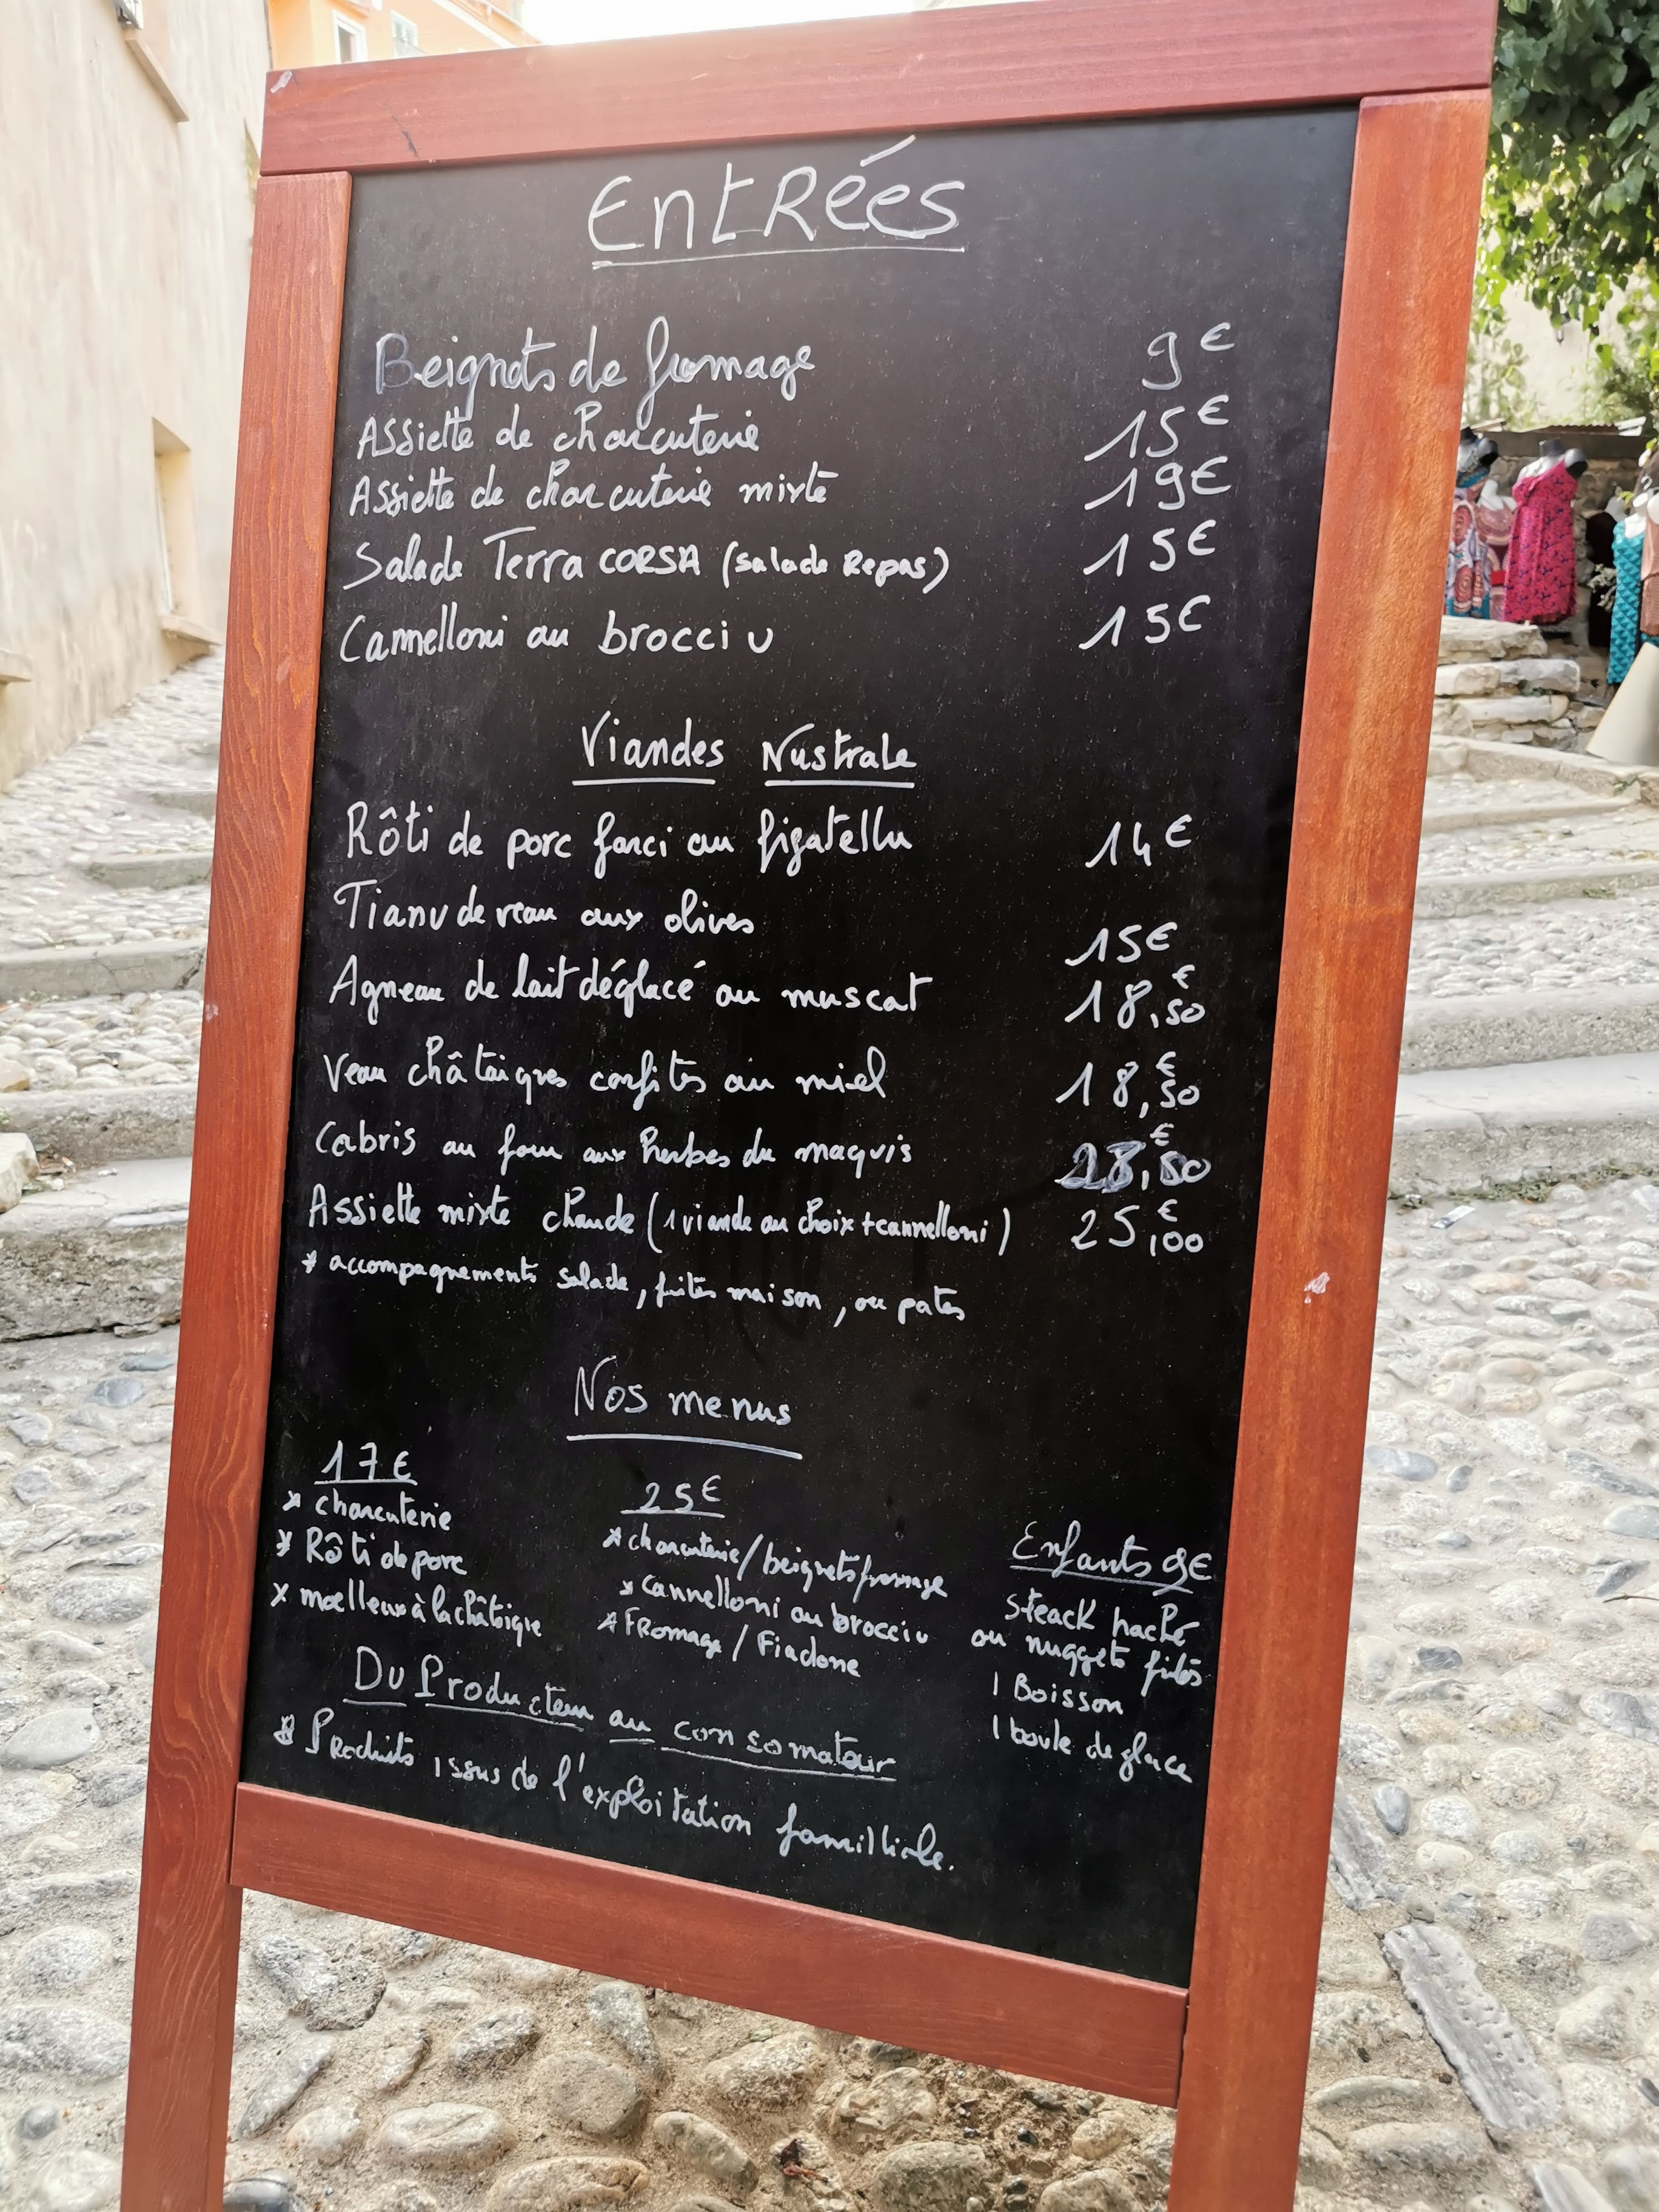 EntRées
Beignets de fromage 9€
Assiette de charcuterie 15€
Assiette de charcuterie mixte 19€
Salade Terra CORSA (salade Repas) 15€
Cannelloni au brocciu 15€
Viandes Nustrale
Rôti de porc farci au figatellu 14€
Tianu de veau aux olives 15€
Agneau de lait déglacé au muscat 18,50€
Veau châtaignes confites au miel 18,50€
Cabris au four aux herbes du maquis 28,50€
Assiette mixte chaude (1 viande au choix + cannelloni) 25,00€
* accompagnements salade, frites maison, ou pates
Nos menus
17€
* charcuterie
* Rôti de porc
* moelleux à la châtaigne
25€
* charcuterie/beignets fromage
* Cannelloni au brocciu
* FRomage / Fiadone
Enfants 9€
steack haché
ou nuggets frites
1 Boisson
1 boule de glace
Du Producteur au consomateur
* PRoduits issus de l'exploitation familliale.